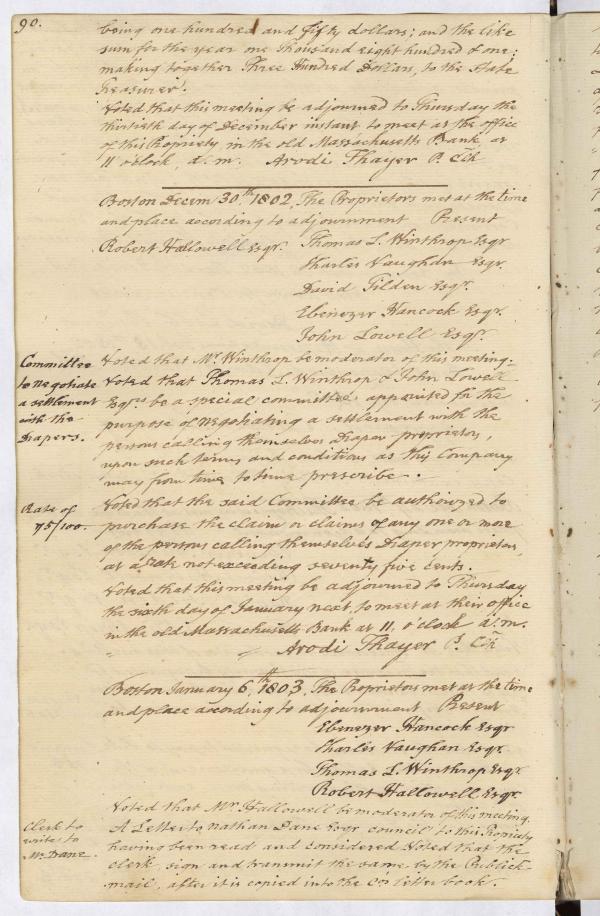 90.
being one hundred and fifty dollars; and the like
sum for the year one thousand eight hundred & one;
making together Three Hundred Dollars, to the State
Treasurer.
Voted that this meeting be adjourned to Thursday the
thirtieth day of December instant to meet at the office
of this Propriety in the old Massachusetts Bank at
11 o'clock, a.m. Arodi Thayer P. Clk
Boston Decem 30th 1802, The Proprietors met at the time
and place according to adjournment Present
Robert Hallowell Esqr. Thomas L. Winthrop Esqr
Charles Vaughan Esqr.
David Tilden Esqr.
Ebenezer Hancock Esqr.
John Lowell Esqr.
Voted that Mr. Winthrop be moderator of this meeting.
Committee
to negotiate
a settlement
with the
Drapers.
Voted that Thomas L. Winthrop & John Lowell
Esqrs be a special committee appointed for the
purpose of negotiating a settlement with the
persons calling themselves Draper proprietors,
upon such terms and conditions as this Company
may from time to time prescribe.
Rate of
75/100.
Voted that the said Committee be authorized to
purchase the claim or claims of any one or more
of the persons calling themselves Draper proprietors,
at a rate not exceeding seventy five cents.
Voted that this meeting be adjourned to Thursday
the sixth day of January next, to meet at their office
in the old Massachusetts Bank at 11, o'clock a.m.
Arodi Thayer P. Clk
Boston January 6th, 1803, The Proprietors met at the time
and place according to adjournment Present
Ebenezer Hancock Esqr
Charles Vaughan Esqr.
Thomas L. Winthrop Esqr.
Robert Hallowell Esqr.
Voted that Mr. Hallowell be moderator of this meeting.
Clerk to
write to
Mr. Dane.
A Letter to Nathan Dane Esqr council to this Propriety
having been read and considered Voted that the
clerk, sign and transmit the same by the Publick
mail, after it is copied into the Cos letter book.